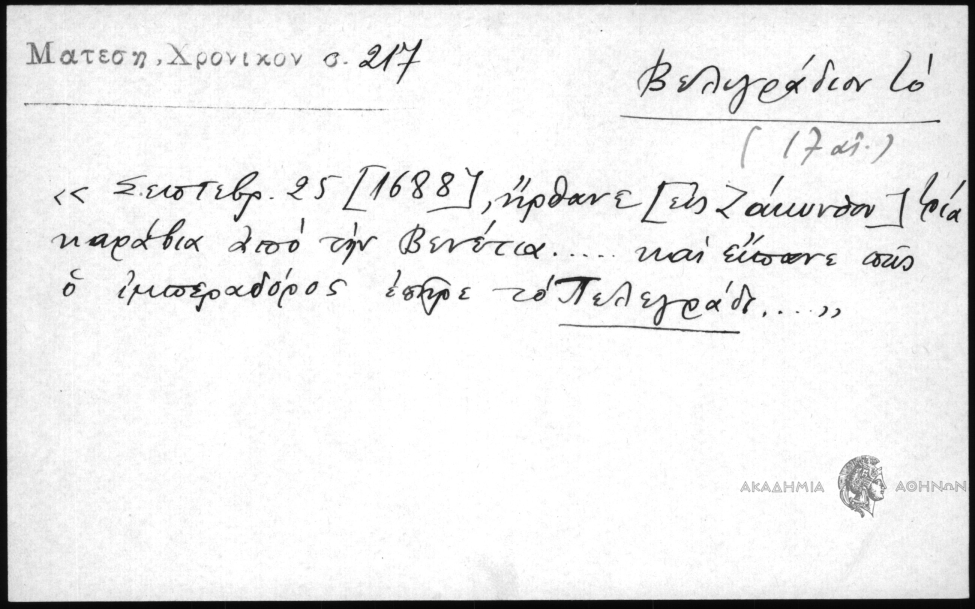 Ματεση, Χρονικον σ. 217
Βελιγράδιον τό
(17 αἰ.)
« Σεπτεβρ. 25 [1688], ἤρθανε [εἰς Ζάκυνθον] τρία
καράβια ἀπό τήν Βενέτια..... καί εἴπανε πῶς
ὁ ἰμπεραδόρος ἐπῆρε τό Πελεγράδι....»
ΑΚΑΔΗΜΙΑ ΑΘΗΝΩΝ